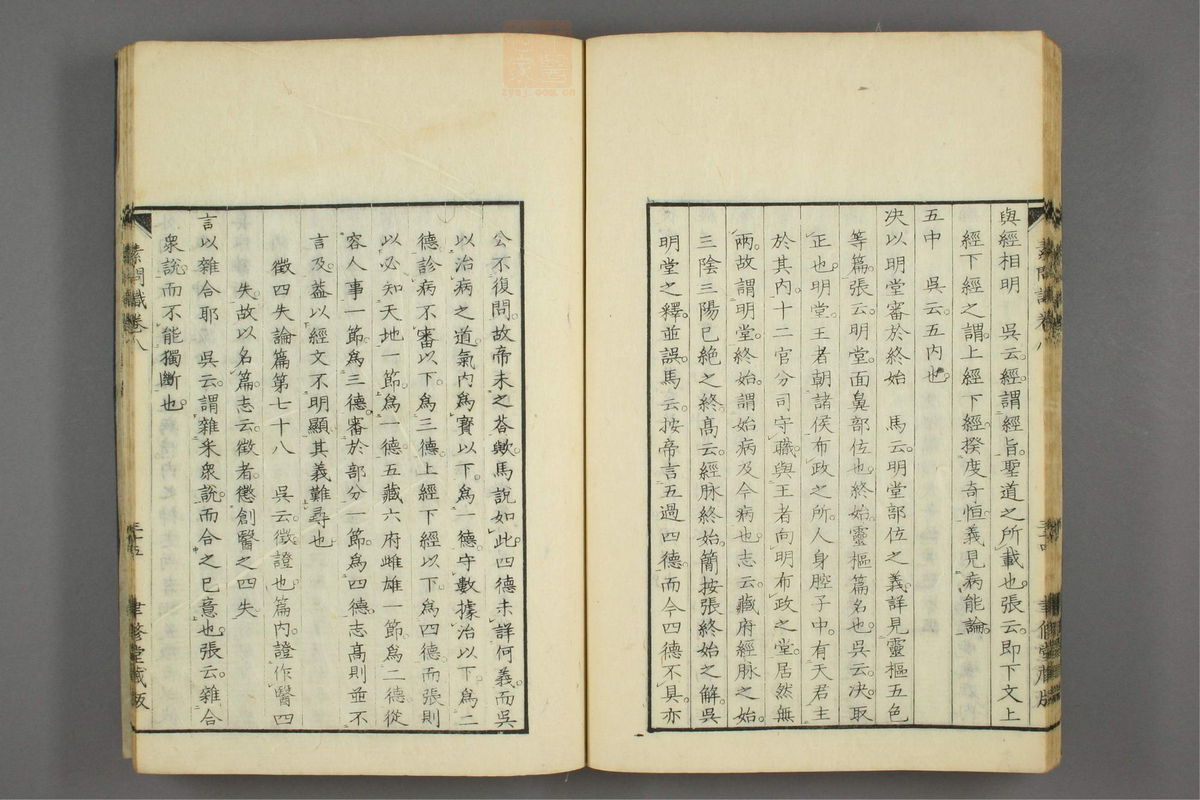 與經相明　吳云經謂經旨聖道之所載也張云即下文上
經下經之謂上經下經揆度奇恒義見病能論
五中　吳云五內也
決以明堂審於終始　馬云明堂部位之義詳見靈樞五色
等篇張云明堂面鼻部位也終始靈樞篇名也吳云決取
正也明堂王者朝諸侯布政之所人身腔子中有天君主
於其內十二官分司守職與王者向明布政之堂居然無
兩故謂明堂終始謂始病及今病也志云藏府經脉之始
三陰三陽已絶之終高云經脉終始簡按張終始之解吳
明堂之釋並誤馬云按帝言五過四德而今四德不具亦
素問識卷八
三十四
聿修堂藏版
公不復問故帝未之荅歟馬說如此四德未詳何義而吳
以治病之道氣內爲寶以下爲一德守數據治以下爲二
德診病不審以下爲三德上經下經以下爲四德而張則
以必知天地一節爲一德五藏六府雌雄一節爲二德從
容人事一節爲三德審於部分一節爲四德志高則並不
言及葢以經文不明顯其義難尋也
徵四失論篇第七十八　吳云徵證也篇內證作醫四
失故以名篇志云徵者懲創醫之四失
言以雜合耶　吳云謂雜采衆說而合之已意也張云雜合
衆說而不能獨斷也
素問識卷八
三十五
聿修堂藏版
zysj.com.cn